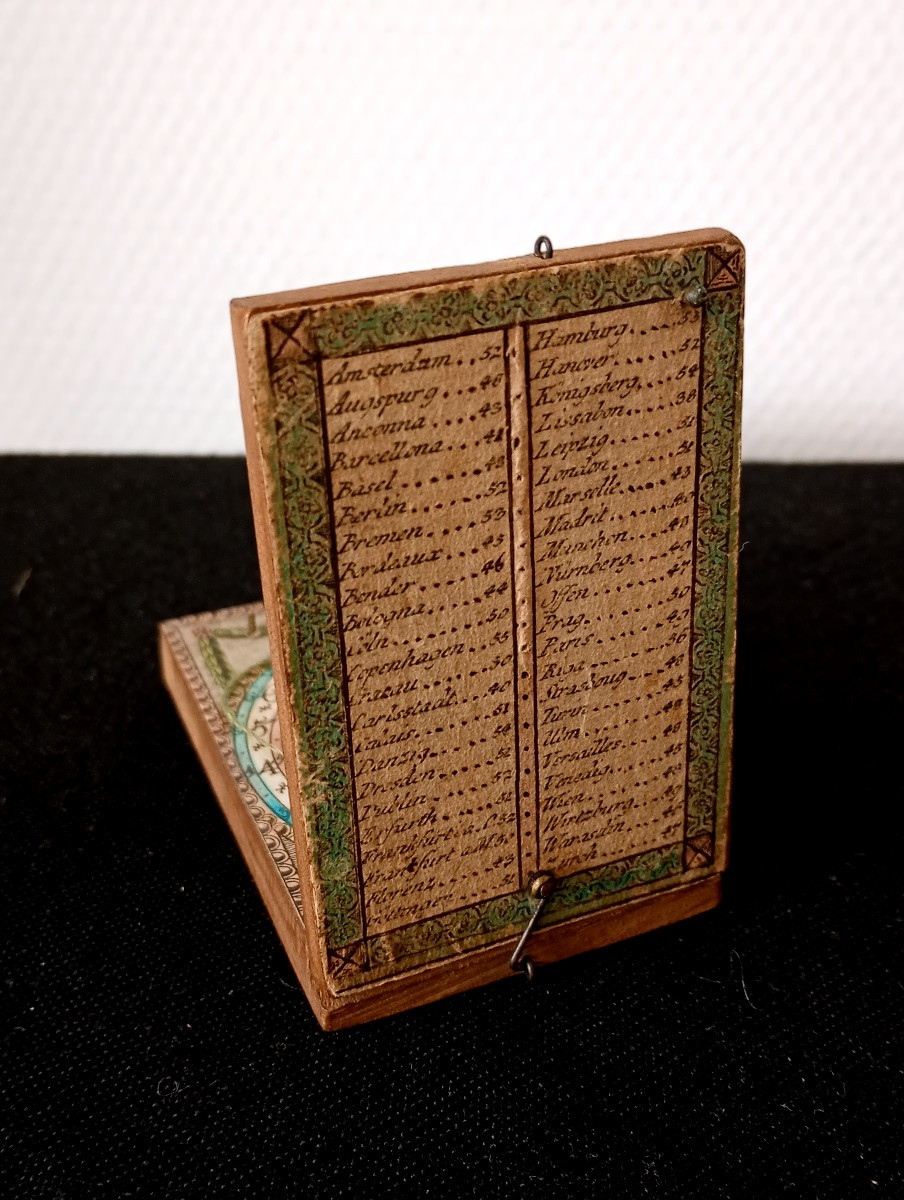 Amsterdam..52
Augspurg...48
Anconna...43
Barcellona...41
Basel......48
Berlin.....52
Bremen....53
Bordeaux...45
Bender....46
Bologna....44
Cöln......50
Copenhagen..55
Cracau....50
Carlsstadt...
Calais....51
Danzig....54
Dresden....
Dublin....52
Erfurth....51
Frankfurt
Frankfurt a.M. 50
Florenz....43
51
Hamburg....53
Hanover.....52
Konigsberg...54
Lissabon....38
Leipzig.....51
London....51
Marselle....43
Madrit.....40
Munchen....48
Nürnberg...49
Offen.....47
Prag......50
Paris.....49
Riga......56
Strasboug...48
Turin.....45
Ulm......48
Versailles...48
Venedig....45
Wien.....48
Wirtzburg...49
Warasdin...46
Zurch....47